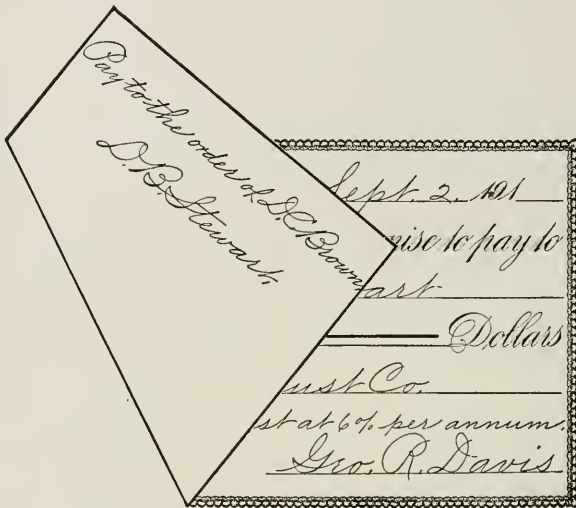 Pay to the order of D.C. Brown,
D.B. Stewart.
Sept. 2. 191
mise to pay to
art
Dollars
ust Co.
st at 6% per annum.
Geo. R. Davis